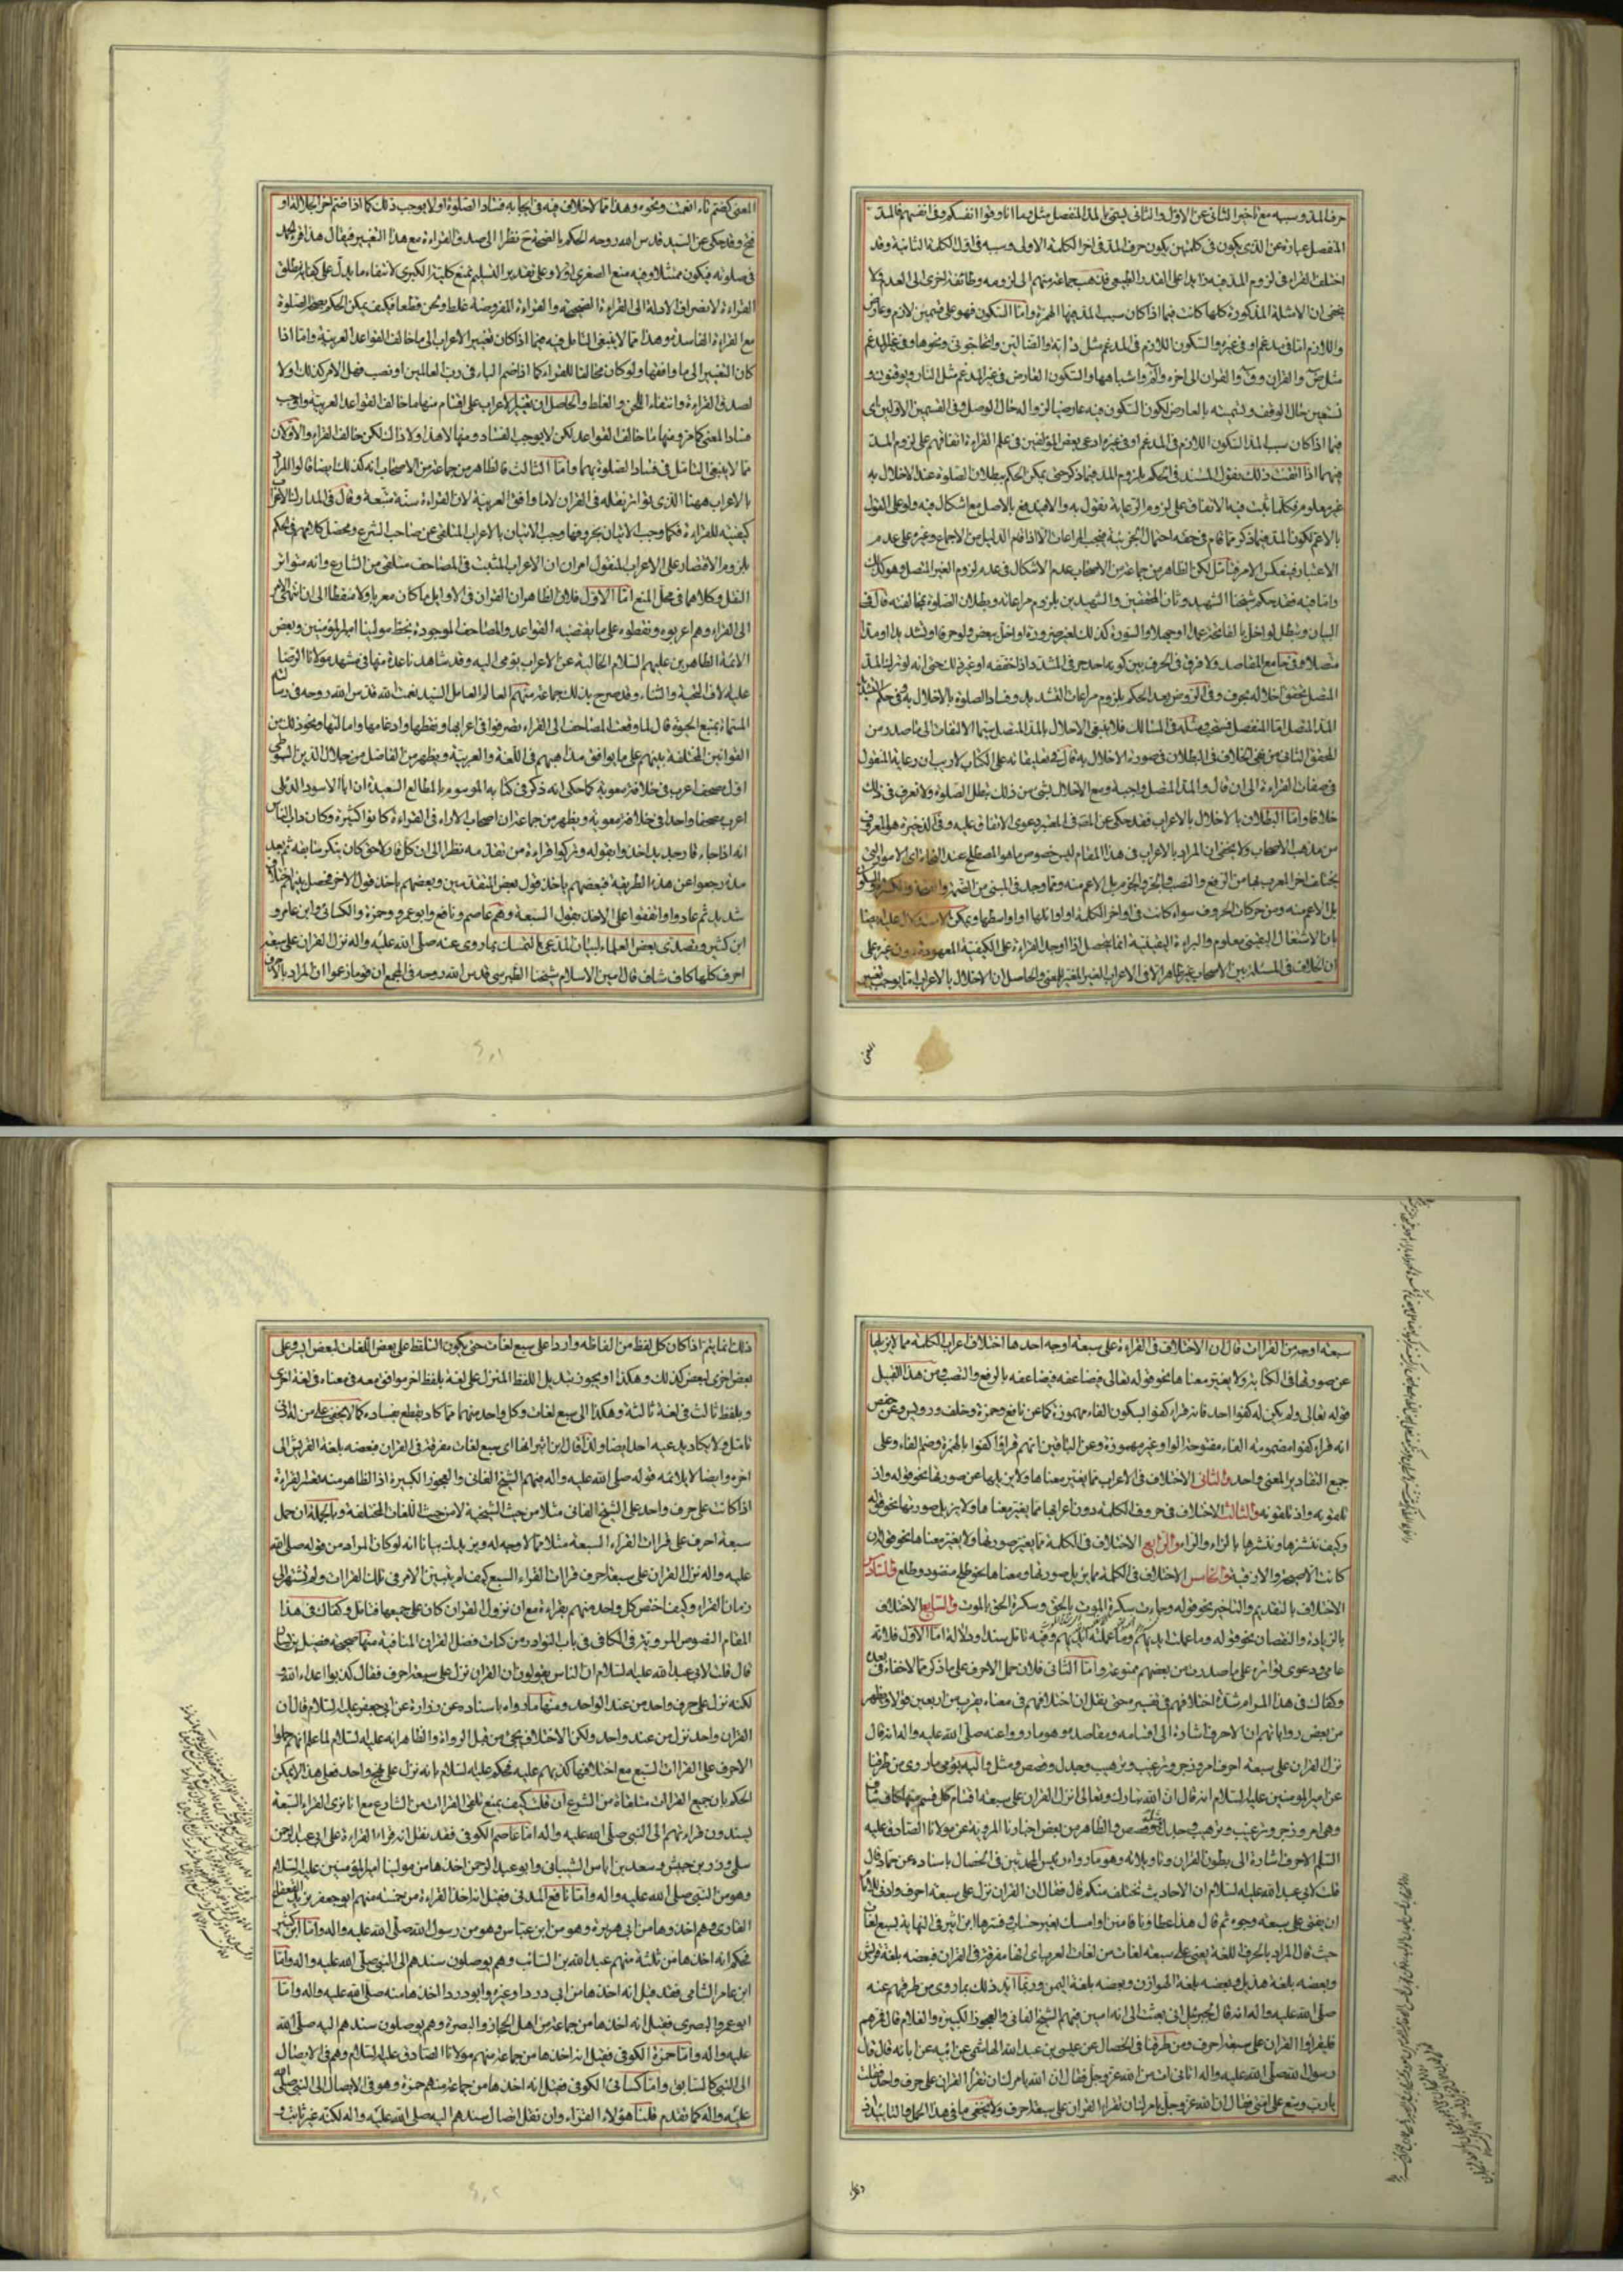 حرف المد وسببه مع تاخير الثانى عن الاول والثانى يسمى بالمد المنفصل مثل بما انا وقوا انفسكم وفى انفسهم فالمد
المنفصل عبارة عن الذى يكون فى كلمتين يكون حرف المد فى اخر الكلمة الاولى وسببه فى اول الكلمة الثانية وقد
اختلف القراء فى لزوم المد فيه زايدا على القدر الطبيعى فذهب جماعة منهم الى لزومه وطائفة اخرى الى العدم ولا
يخفى ان الامثلة المذكورة كلها كانت فيما اذا كان سبب المد فيها الهمزة وامّا السكون فهو على قسمين لازم وعارض
واللازم امّا فى مدغم او فى غيره والسكون اللازم فى المدغم مثل دابّة والضالين واتحاجونى ونحوها وفى غير المدغم
مثل ص والقران وق والقران الى اخره والم واشباهها والسكون العارض فى غير المدغم مثل النار ويوقنون و
نستعين حال الوقف وتسميته بالعارض لكون السكون فيه عارضيا لزواله حال الوصل وفى القسمين الاولين اى
فيما اذا كان سبب المد السكون اللازم فى المدغم او فى غيره ادعى بعض المؤلفين فى علم القراءة اتفاقهم على لزوم المد
فيهما اذا اتقنت ذلك نقول المستند فى الحكم بلزوم المد فيما ذكر حتى يمكن الحكم ببطلان الصلوة عند الاخلال به
غير معلوم فكلما ثبت فيه الاتفاق على لزوم الرعاية نقول به والا فيدفع بالاصل مع اشكال فيه ولو على القول
بالاعم لكون المد فيما ذكر مما قام فى حقه احتمال الجزئية فيجب المراعات الا اذا قام الدليل من الاجماع وغيره على عدم
الاعتبار فينعكس الامر فتأمل لكن الظاهر من جماعة من الاصحاب عدم الاشكال فى عدم لزوم الغير المتصل وهو كذلك
وامّا فيه فقد حكم شيخنا الشهيد وثان المحققين والشهيدين بلزوم مراعاته وبطلان الصلوة بمخالفته قال فى
البيان وتبطل لو اخل بالفاتحة عمدا او جهلا والسورة كذلك لغير ضرورة او اخل ببعض ولو حرفا او تشديدا او مدا
متصلا وفى جامع المقاصد ولا فرق فى الحرف بين كونه احد حرفى المشدد اذا خففه او غيره لك حتى انه لو ترك المد
المتصل تحقق اخلاله بحرف وفى الروض بعد الحكم بلزوم مراعات التشديد وفساد الصلوة بالاخلال به وفى حكم التشديد
المد المتصل امّا المنفصل فمستحب ومثله فى المسالك فلا ينبغى الاخلال بالمد المتصل سيما الالتفات الى ما صدر من
المحقق الثانى من نفى الخلاف فى البطلان فى صورة الاخلال به قال فى تعليقاته على الكتاب لاريب ان رعاية المنقول
فى صفات القراءة الى ان قال والمد المتصل واجبة ومع الاخلال بشئ من ذلك تبطل الصلوة ولا نعرف فى ذلك
خلافا وامّا البطلان بالاخلال بالاعراب فقد حكى عن المص فى المعتبر دعوى الاتفاق عليه وفى الذخيرة هو المعروف
من مذهب الاصحاب ولا يخفى ان المراد بالاعراب فى هذا المقام ليس خصوص ما هو المصطلح عند النحاة اى الامور التى
يختلف اخر المعرب بها من الرفع والنصب والجر والجزم بل الاعم منه ومما وجد فى المبنى من الضم والفتحة والكسر والسكون
بل الاعم منه ومن حركات الحروف سواء كانت فى اواخر الكلمة او اوائلها او اواسطها ويمكن الاستدلال عليه ايضا
بان الاشتغال اليقينى معلوم والبراءة اليقينية انما يحصل اذا اوجد القراءة على الكيفية المعهودة دون غيره على
ان الخلاف فى المسئلة بين الاصحاب غير ظاهر الا فى الاعراب الغير المغير للمعنى والحاصل ان الاخلال بالاعراب امّا يوجب تغيير
المعنى
المعنى كضم تاء انعمت ونحوه وهذا مما لاخلاف فيه فى ايجابه فساد الصلوة او لا يوجب ذلك كما اذا ضم اخر الجلالة او
فتح وقد حكى عن السيد قدس الله روحه الحكم بالصحة ح نظرا الى صدق القراءة مع هذا التغيير فيقال هذا قرء الحمد
فى صلوته فيكون ممتثلا وفيه منع الصغرى اولا وعلى تقدير التسليم نمنع كلية الكبرى لانتفاء ما يدل على كفاية مطلق
القراءة لانصراف الادلة الى القراءة الصحيحة والقراءة المفروضة غلط ولحن قطعا فكيف يمكن الحكم بصحة الصلوة
مع القراءة الفاسدة وهذا مما لا ينبغى التامل فيه فيما اذا كان تغيير الاعراب الى ما خالف القواعد العربية وامّا اذا
كان التغيير الى ما وافقها ولو كان مخالفا للقراء كما اذا ضم الباء فى رب العالمين او نصب فهل الامر كذلك او لا
لصدق القراءة وانتفاء اللحن والغلط والحاصل ان تغيير الاعراب على اقسام منها ما خالف القواعد العربية واوجب
فساد المعنى كما مر ومنها ما خالف القواعد لكن لا يوجب الفساد ومنها لا هذا ولا ذاك لكن خالف القراء والاولان
مما لا ينبغى التامل فى فساد الصلوة بهما وامّا الثالث فالظاهر من جماعة من الاصحاب انه كذلك ايضا قالوا المراد
بالاعراب ههنا الذى تواتر نقله فى القران لا ما وافق العربية لان القراءة سنة متبعة وقال فى المدارك الاعراب
كيفية للقراءة فكما وجب الاتيان بحروفها وجب الاتيان بالاعراب المتلقى عن صاحب الشرع ومحصل كلامهم فى الحكم
بلزوم الاقتصار على الاعراب المنقول امران ان الاعراب المثبت فى المصاحف متلقى من الشارع وانه متواتر
النقل وكلاهما فى محل المنع امّا الاول فلان الظاهر ان القران فى الاوايل ما كان معربا ولا منقطا الى ان انتهى الامر
الى القراء وهم اعربوه ونقطوه على ما يقتضيه القواعد والمصاحف الموجودة بخط مولينا امير المؤمنين وبعض
الائمة الطاهرين عليهم السلام الخالية عن الاعراب يومى اليه وقد شاهدنا عدة منها فى مشهد مولانا الرضا
عليه الاف التحية والثناء وقد صرح بذلك جماعة منهم العالم العامل السيد نعمت الله قدس الله روحه فى رسالته
المسماة بمنبع الحيوة قال لما وقعت المصاحف الى القراء تصرفوا فى اعرابها ونقطها وادغامها وامالتها ونحو ذلك من
القوانين المختلفة بينهم على ما يوافق مذاهبهم فى اللغة والعربية ويظهر من الفاضل من جلال الدين السيوطى
اول مصحف اعرب فى خلافة معوية كما حكى انه ذكر فى كتابه الموسوم بالمطالع السعيدة ان ابا الاسود الدئلى
اعرب مصحفا واحدا فى خلافة معوية ويظهر من جماعة ان اصحاب الاراء فى القراءة كانوا كثيرة وكان داب الناس
انه اذا جاء قار جديد اخذوا بقوله وتركوا قراءة من تقدمه نظرا الى ان كل قار لاحق كان ينكر سابقه ثم بعد
مدة رجعوا عن هذه الطريقة فبعضهم ياخذ قول بعض المتقدمين وبعضهم ياخذ قول الاخر فحصل بينهم اختلاف
شديد ثم عادوا واتفقوا على الاخذ بقول السبعة وهم عاصم ونافع وابوعمرو وحمزة والكسائى وابن عامر و
ابن كثير وتصدى بعض العلماء لبيان المدعى بالتمسك بما روى عنه صلى الله عليه واله نزل القران على سبعة
احرف كلها كاف شاف قال امين الاسلام شيخنا الطبرسى قدس الله روحه فى المجمع ان قوما زعموا ان المراد بالاحرف
سبعة اوجه من القراات قال ان الاختلاف فى القراءة على سبعة اوجه احدها اختلاف اعراب الكلمة مما لا يزيلها
عن صورتها فى الكتابة ولا يغير معناها نحو قوله تعالى فيضاعفه فيضاعفه بالرفع والنصب ومن هذا القبيل
قوله تعالى ولم يكن له كفوا احد فانه قراء كفوا بسكون الفاء مهموزة كما عن نافع وحمزة وخلف ورويس وعن حفص
انه قراء كفوا مضمومة الفاء مفتوحة الواو وغير مهموزة وعن الباقين انهم قراؤا كفوا بالهمزة وضم الفاء وعلى
جميع التقادير المعنى واحد والثانى الاختلاف فى الاعراب مما يغير معناها ولا يزيلها عن صورتها نحو قوله واذ
تلقونه واذ تلقونه والثالث الاختلاف فى حروف الكلمة دون اعرابها مما يغير معناها ولا يزيل صورتها نحو قوله
وكيف ننشزها وننشرها بالزاء والراء والرابع الاختلاف فى الكلمة مما يغير صورتها ولا يغير معناها نحو قوله ان
كانت الا صيحة والا زقية والخامس الاختلاف فى الكلمة مما يزيل صورتها ومعناها نحو طلح منضود وطلع والسادس
الاختلاف بالتقديم والتاخير نحو قوله وجاءت سكرة الموت بالحق وسكرة الحق بالموت والسابع الاختلاف
بالزيادة والنقصان نحو قوله وما عملت ايديهم وما عملته ايديهم وفيه تامل سندا ودلالة امّا الاول فلانه
عامى ودعوى تواتره على ما صدرت من بعضهم ممنوعة وامّا الثانى فلان حمل الاحرف على ما ذكر مما لا خفاء فى بعده
وكفاك فى هذا المرام شدة اختلافهم فى تفسيره حتى نقل ان اختلافهم فى معناه يقرب من اربعين قولا ويظهر
من بعض رواياتهم ان الاحرف اشارة الى اقسامه ومقاصده وهو ما رووا عنه صلى الله عليه واله انه قال
نزل القران على سبعة احرف امر وزجر وترغيب وترهيب وجدل وقصص ومثل واليه يومى ما روى من طرقنا
عن امير المؤمنين عليه السلام انه قال ان الله تبارك وتعالى انزل القران على سبعة اقسام كل قسم منها كاف شاف
وهى امر وزجر وترغيب وترهيب وجدل ومثل وقصص والظاهر من بعض اخبارنا المروية عن مولانا الصادق عليه
السلم الاحرف اشارة الى بطون القران وتاويلاته وهو ما رواه رئيس المحدثين فى الخصال باسناده عن حماد قال
قلت لابى عبدالله عليه السلام ان الاحاديث تختلف منكم قال فقال ان القران نزل على سبعة احرف وادنى ما للامام
ان يفتى على سبعة وجوه ثم قال هذا عطاؤنا فامنن او امسك بغير حساب وفسرها ابن اثير فى النهاية بسبع لغات
حيث قال المراد بالحرف اللغة يعنى على سبعة لغات من لغات العرب اى انها مفرقة فى القران فبعضه بلغة قريش
وبعضه بلغة هذيل وبعضه بلغة الهوازن وبعضه بلغة اليمن وربما ايد ذلك بما روى من طرقهم عنه
صلى الله عليه واله انه قال لجبرئيل انى بعثت الى امة اميين فيهم الشيخ الفانى والعجوز الكبيرة والغلام قال فمرهم
فليقراوا القران على سبعة احرف ومن طرقنا فى الخصال عن عيسى بن عبدالله الهاشمى عن ابيه عن ابائه قال قال
رسول الله صلى الله عليه واله اتانى ات من الله عز وجل فقال ان الله يامرك ان تقرا القران على حرف واحد فقلت
يارب وسع على امتى فقال ان الله عز وجل يامرك ان تقرا القران على سبعة احرف ولا يخفى ما فى هذا الحمل والتاييد اذ
ذلك
ذلك انما يتم اذا كان كل لفظ من الفاظه واردا على سبع لغات حتى يكون التلفظ على بعض اللغات لبعض ايسر وعلى
بعض اخرى لبعض كذلك وهكذا او يجوز تبديل اللفظ المنزل على لغة بلفظ اخر موافق معه فى معناه فى لغة اخرى
وبلفظ ثالث فى لغة ثالثة وهكذا الى سبع لغات وكل واحد منهما مما كاد يقطع بفساده كما لا يخفى على من له ادنى
تامل ولا يكاد يدعيه احد ايضا ولذا قال ابن اثير انها اى سبع لغات مفرقة فى القران فبعضه بلغة القريش الى
اخره وايضا لا يلائمه قوله صلى الله عليه واله فيهم الشيخ الفانى والعجوز الكبيرة اذ الظاهر منه تعسر القراءة
اذا كانت على حرف واحد على الشيخ الفانى مثلا من حيث الشيخية لا من حيث اللغات المختلفة وبالجملة ان حمل
سبعة احرف على قراات القراء السبعة مثلا مما لا وجه له ويزيدك بيانا انه لو كان المراد من قوله صلى الله
عليه واله نزل القران على سبعة احرف قراات القراء السبع كيف لم يتبين الامر فى تلك القراات ولم تشتهر الى
زمان القراء وكيف اختص كل واحد منهم بقراءة مع ان نزول القران كان على جميعها فتامل وكفاك فى هذا
المقام النصوص المروية فى الكافى فى باب النوادر من كتاب فضل القران المنافية منها صحيحة فضيل بن يسار
قال قلت لابى عبدالله عليه السلام ان الناس يقولون ان القران نزل على سبعة احرف فقال كذبوا اعداء الله و
لكنه نزل على حرف واحد من عند الواحد ومنها ما رواه باسناده عن زرارة عن ابى جعفر عليه السلام قال ان
القران واحد نزل من عند واحد ولكن الاختلاف يجئ من قبل الرواة والظاهر انه عليه السلام لما علم انهم حملوا
الاحرف على القراات السبع مع اختلافها كذبهم عليه فحكم عليه السلام بانه نزل على نهج واحد فعلى هذا لا يمكن
الحكم بان جميع القراات متلقاة من الشرع ان قلت كيف يمنع تلقى القراات من الشارع مع انا نرى القراء السبعة
يسندون قراءتهم الى النبى صلى الله عليه واله امّا عاصم الكوفى فقد نقل انه قراء القراءة على ابى عبدالرحمن
سلمى وزر بن حبيش وسعد بن اياس الشيبانى وابو عبدالرحمن اخذها من مولينا امير المؤمنين عليه السلام
وهو من النبى صلى الله عليه واله وامّا نافع المدنى فقيل انه اخذ القراءة من خمسة منهم ابوجعفر يزيد بن القعقاع
القارى وهم اخذوها من ابى هريرة وهو من ابن عباس وهو من رسول الله صلى الله عليه واله وامّا ابن كثير
فحكم انه اخذها من ثلثة منهم عبدالله بن السائب وهم يوصلون سندهم الى النبى صلى الله عليه واله وامّا
ابن عامر الشامى فقد قيل انه اخذها من ابى دردا وغيره وابودردا اخذها منه صلى الله عليه واله وامّا
ابوعمرو البصرى فقيل انه اخذها من جماعة من اهل الحجاز والبصرة وهم يوصلون سندهم اليه صلى الله
عليه واله وامّا حمزة الكوفى فقيل انه اخذها من جماعة منهم مولانا الصادق عليه السلام وهم فى الايصال
الى النبى كالسابق وامّا كسائى الكوفى فقيل انه اخذها من جماعة منهم حمزة وهو فى الايصال الى النبى صلى الله
عليه واله كما تقدم قلنا هؤلاء القراء وان نقل اتصال سندهم اليه صلى الله عليه واله لكنه غير ثابت و